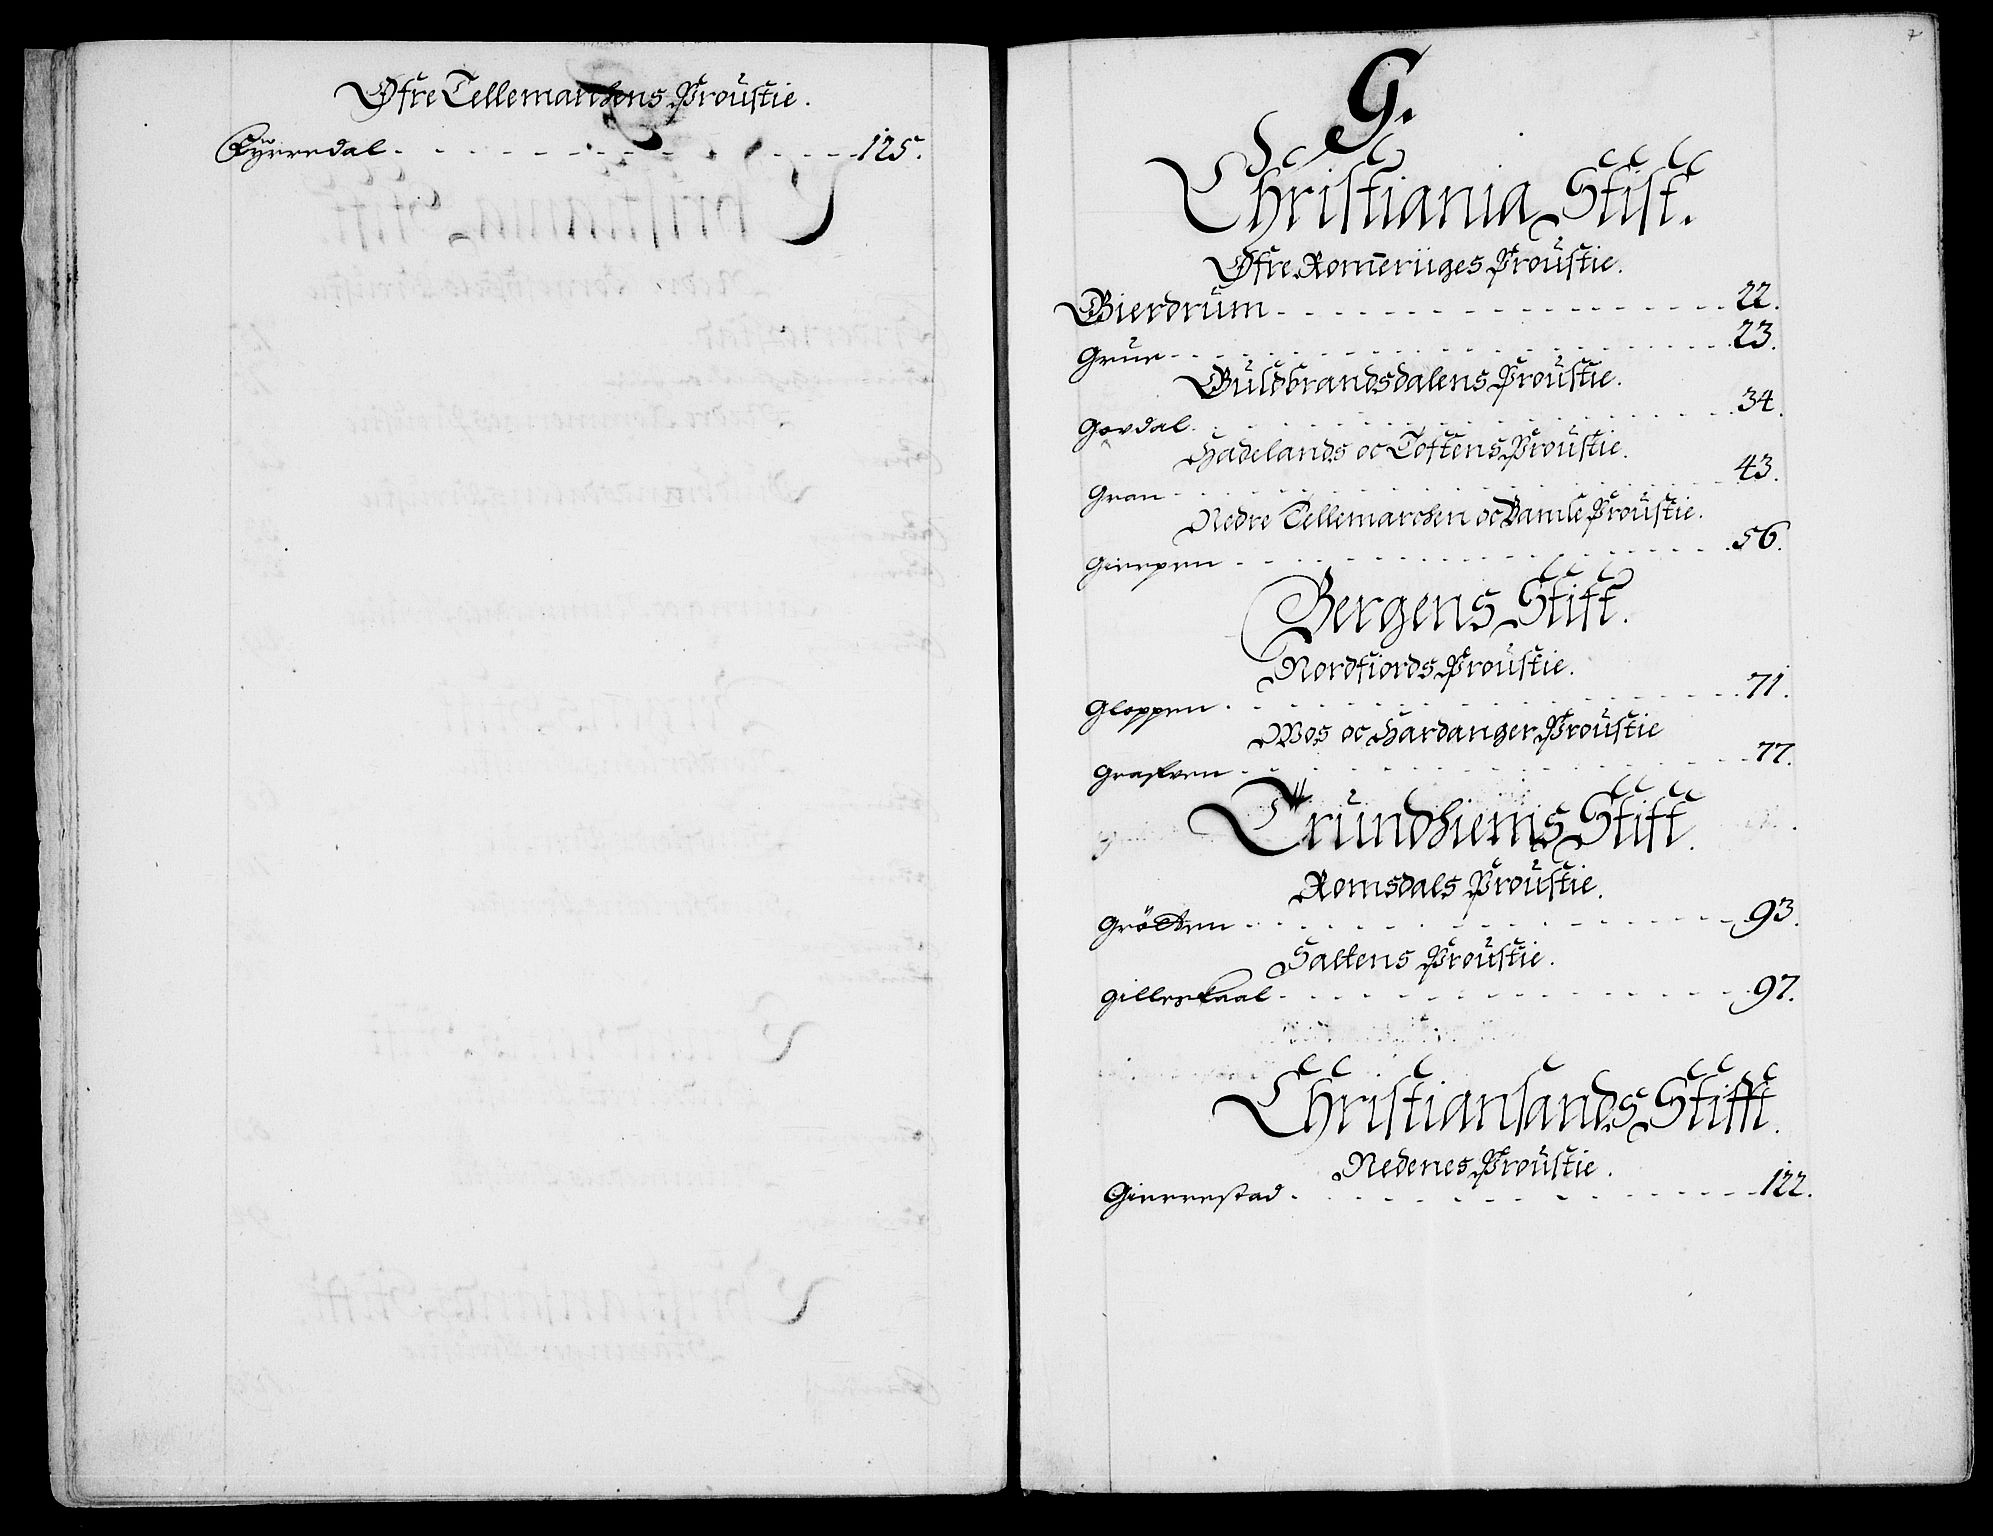 Øfre Tellemarchens Proustie.
Fyrredal - - - - - - - - - - - 125.
7
G.
Christiania Stift.
Øfre Romeriiges Proustie.
Gierdrum - - - - - - - - - - - 22.
Grue - - - - - - - - - - - 23.
Guldbrandsdalens Proustie.
Govdal - - - - - - - - - - - 34.
Hadelands oc Toftens Proustie.
Gran - - - - - - - - - - - 43.
Nedre Tellemarchen oc Bamle Proustie.
Gierpen - - - - - - - - - - - 56.
Bergens Stift.
Nordfiords Proustie.
Gloppen - - - - - - - - - - - 71.
Wos oc Hardanger Proustie
Grafven - - - - - - - - - - - 77.
Trundhiems Stift.
Romsdals Proustie.
Grötten - - - - - - - - - - - 93.
Saltens Proustie.
Gilleskaal - - - - - - - - - - - 97.
Christiansands Stifft.
Nedenes Proustie.
Gierrestad - - - - - - - - - - - 122.